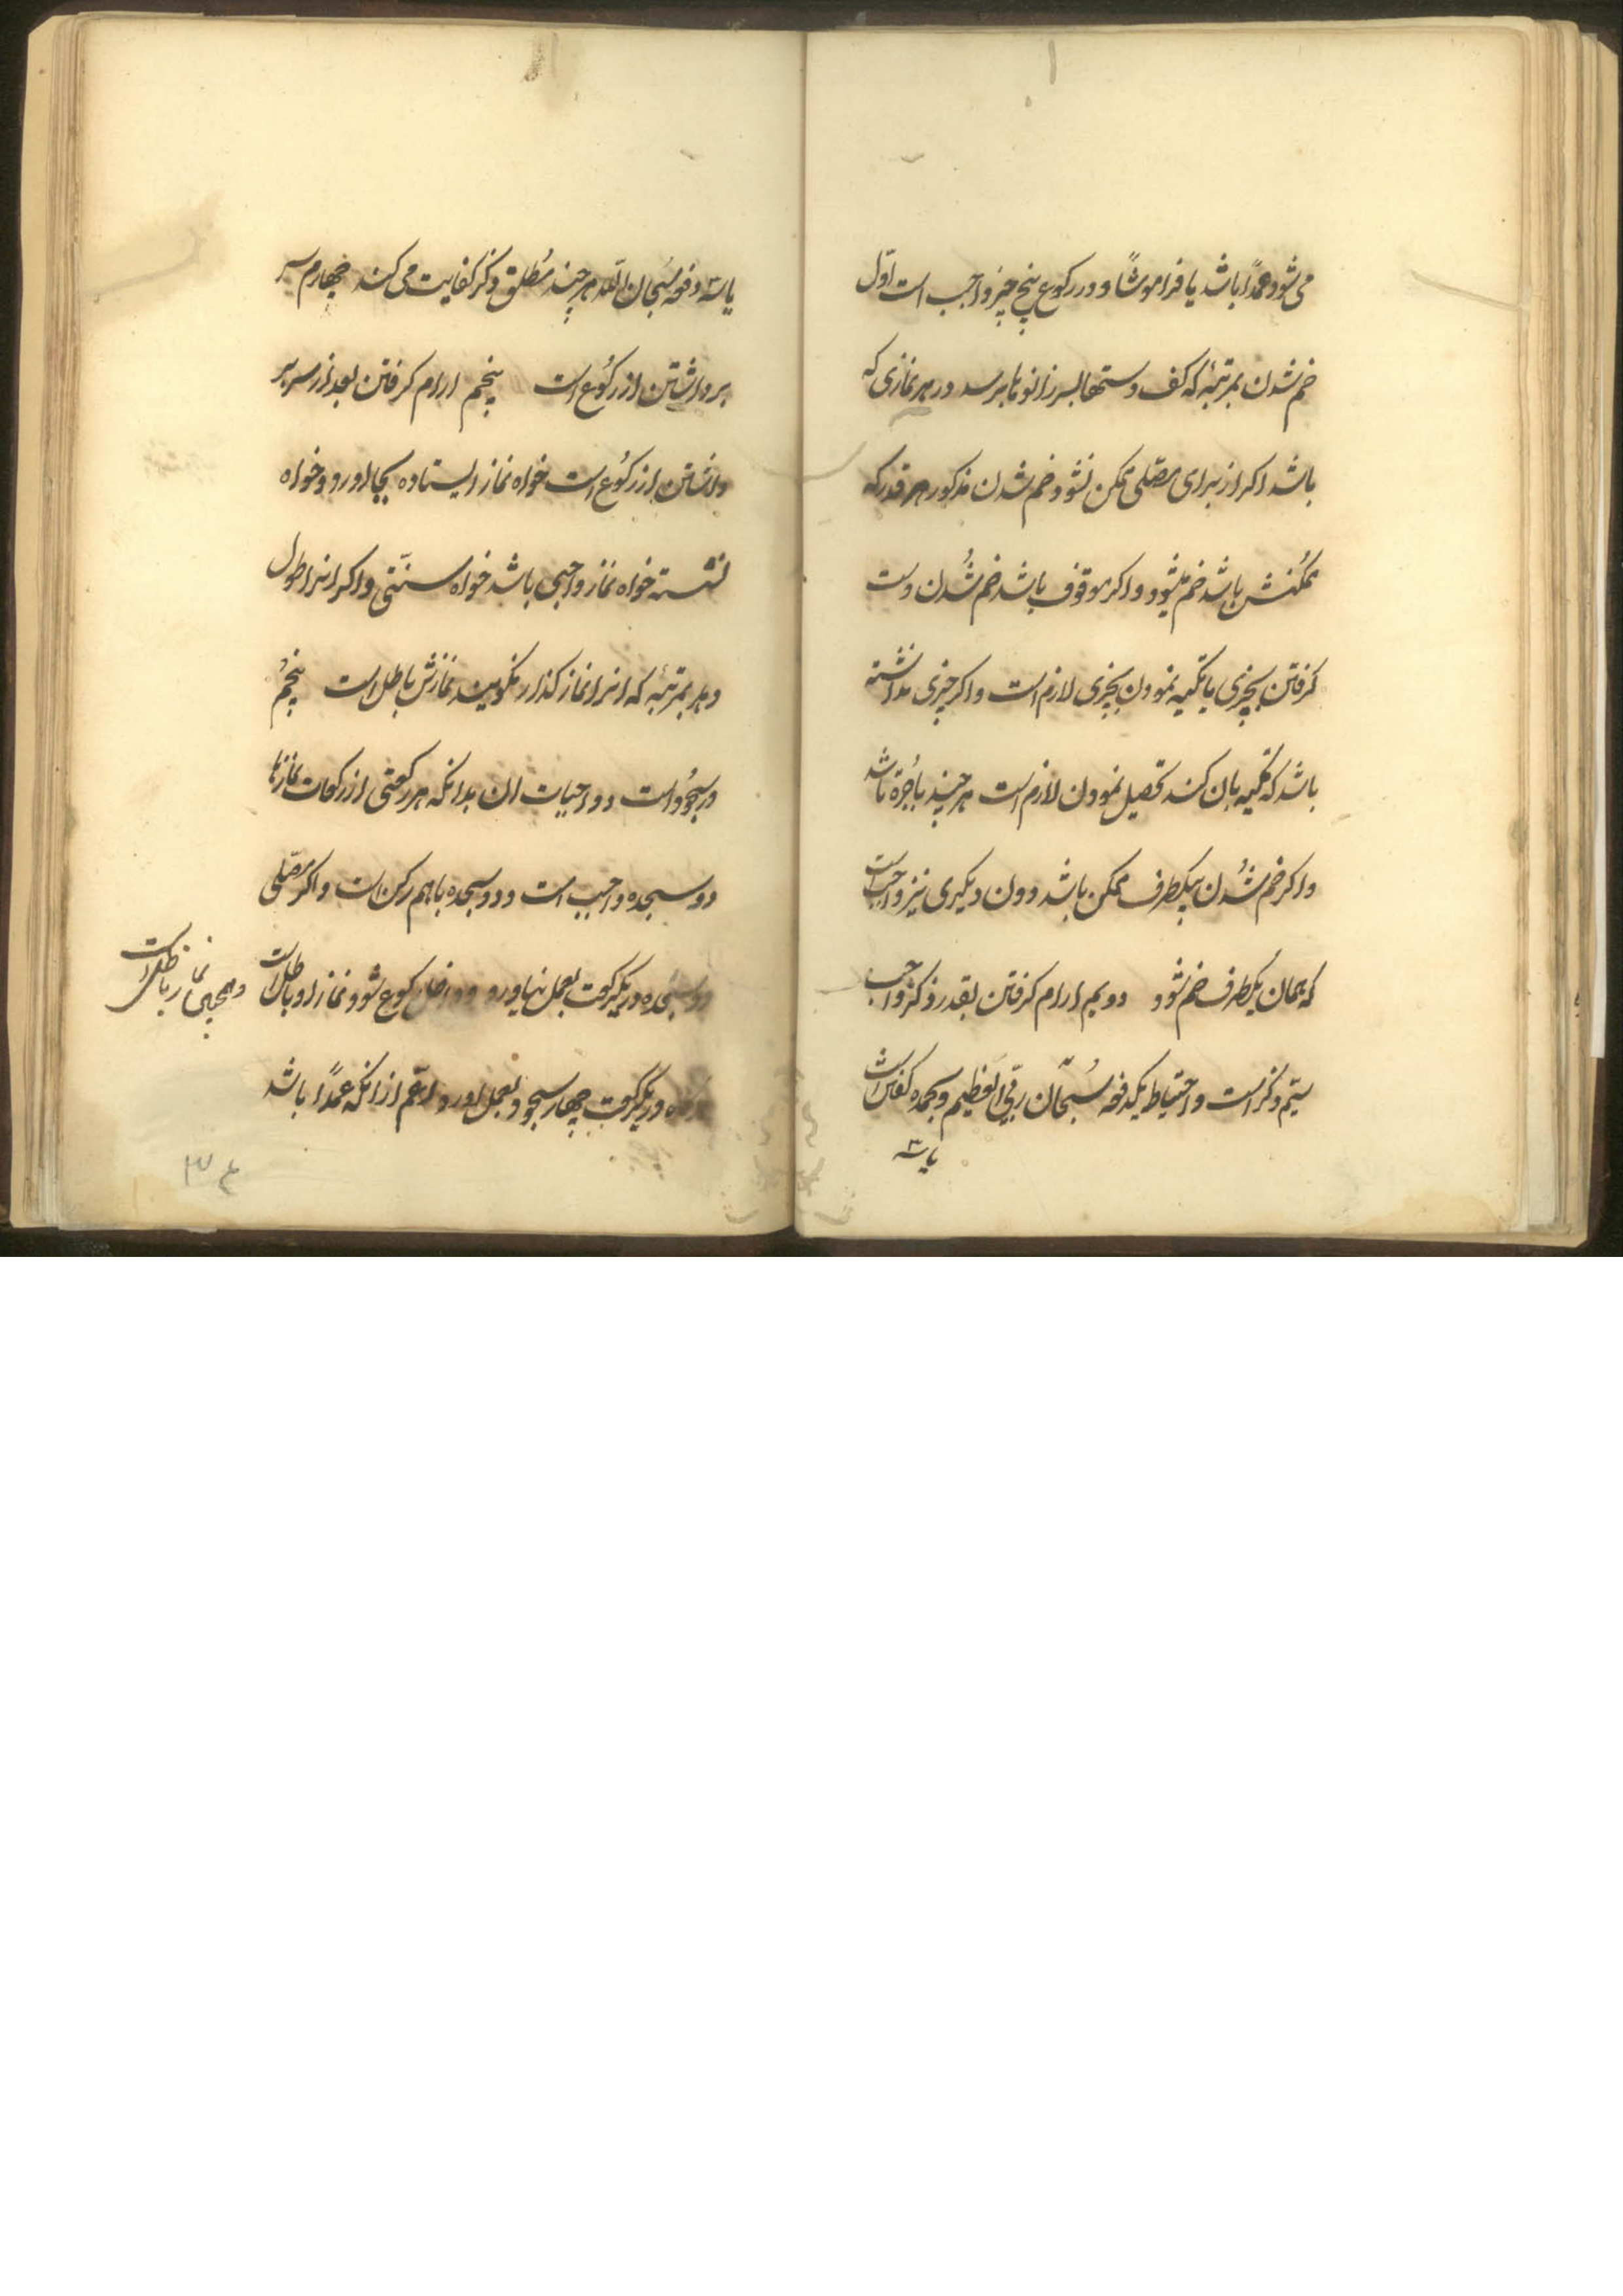 می‌شود عمدًا باشد یا فراموشًا و در رکوع پنج چیز واجب است اوّل
خم شدن بمرتبهٔ که کف دستها بسر زانوها برسد در هر نمازی که
باشد اکر از برای مصّلی ممکن نشود خم شدن مذکور هر قدر که
ممکنش باشد خم بشود و اکر موقوف باشد خم شُدن دست
کرفتن بچیزی یا تکیه نمودن بچیزی لازم است و اکر چیزی نداشته
باشد که تکیه بان کند تحصیل نمودن لازم است هر چند باُجرة باشد
و اکر خم شُدن بیکطرف ممکن باشد دون دیکری نیز واجب است
که بهمان یکطرف خم شود دویم ارام کرفتن بقدر ذکر واجب
سیّم ذکر است و احتیاط یکدفعه سُبحٰان ربّی العظیم و بحمده کفایت است
یا سه
یا سه دفعه سُبحان اللّه هر چند مُطلق ذکر کفایت می کند چهارم سر
برداشتن از رکُوع است پنجم ارام کرفتن بعد از سر بر
داشتن از رکُوع است خواه نماز ایستاده بجا اورد و خواه
نشسته خواه نماز واجبی باشد خواه سنّتی و اکر انرا طول
دهد بمرتبهٔ که انرا نماز کذار نکویند نمازش باطل است پنجمُ
در سجُود است و واجبات ان بدانکه هر رکعتی از رکعات نمازها
دو سجده واجب است و دو سجده باهم رکن است و اکر مصّلی
دو سجده در یکرکعت بعمل نیاورد و داخل رکوع شود نماز او باطل است
و همچنین نماز باطل است
در یکرکعت چهار سجود بعمل اورد اعّم از انکه عمدًا باشد
۳۴